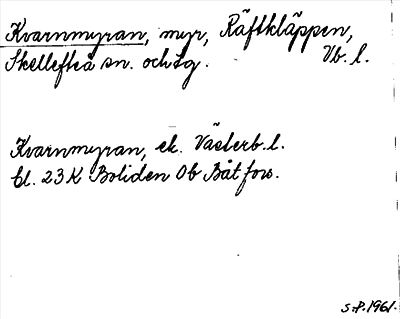 Kvarnmyran, myr, Räftkläppen,
Skellefteå sn. och lg. Vb. l.
Kvarnmyran, ek. Västerb. l.
bl. 23 K Boliden Ob Båtfors.
S.P. 1961.